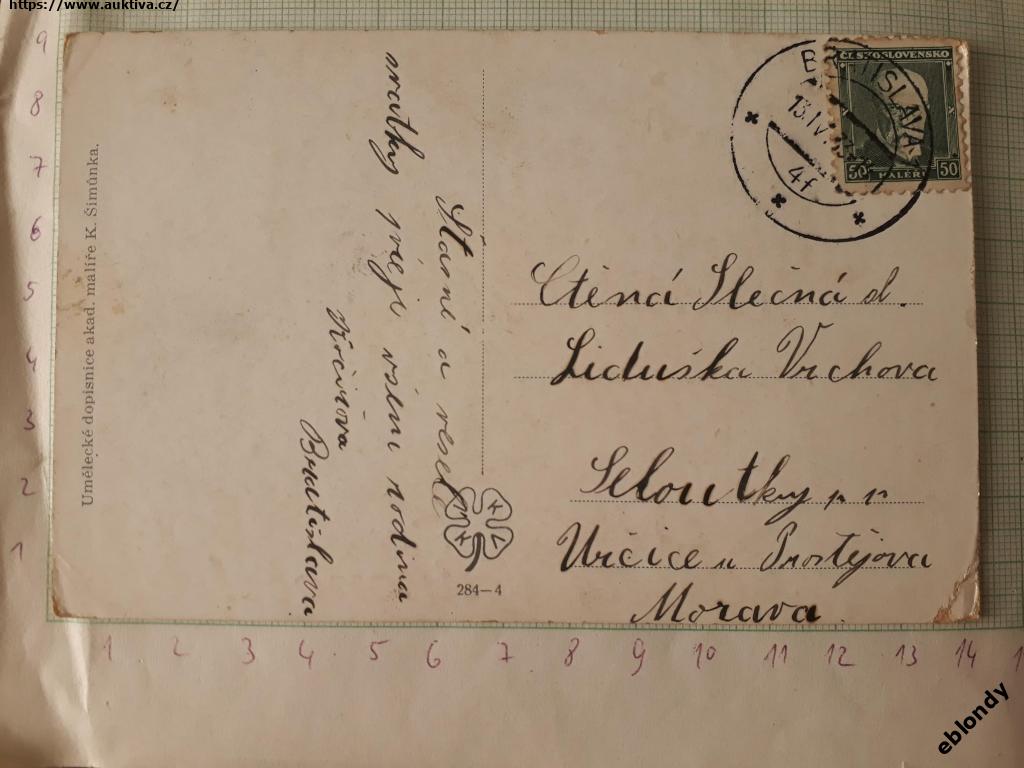 https://www.auktiva.cz/
9
8
7
6
5
4
3
2
1
Umělecké dopisnice akad. malíře K. Šimůnka.
Šťastné a veselé
svátky přeje všem rodina
Bratislava
284—4
BRATISLAVA
13.IV.
4f
ČESKOSLOVENSKO
50 50
HALÉŘŮ
Ctěná Slečná d.
Liduška Vrchova
Seloutky p. n
Určice u Prostějova
Morava.
1 2 3 4 5 6 7 8 9 10 11 12 13 14 1
eblondy